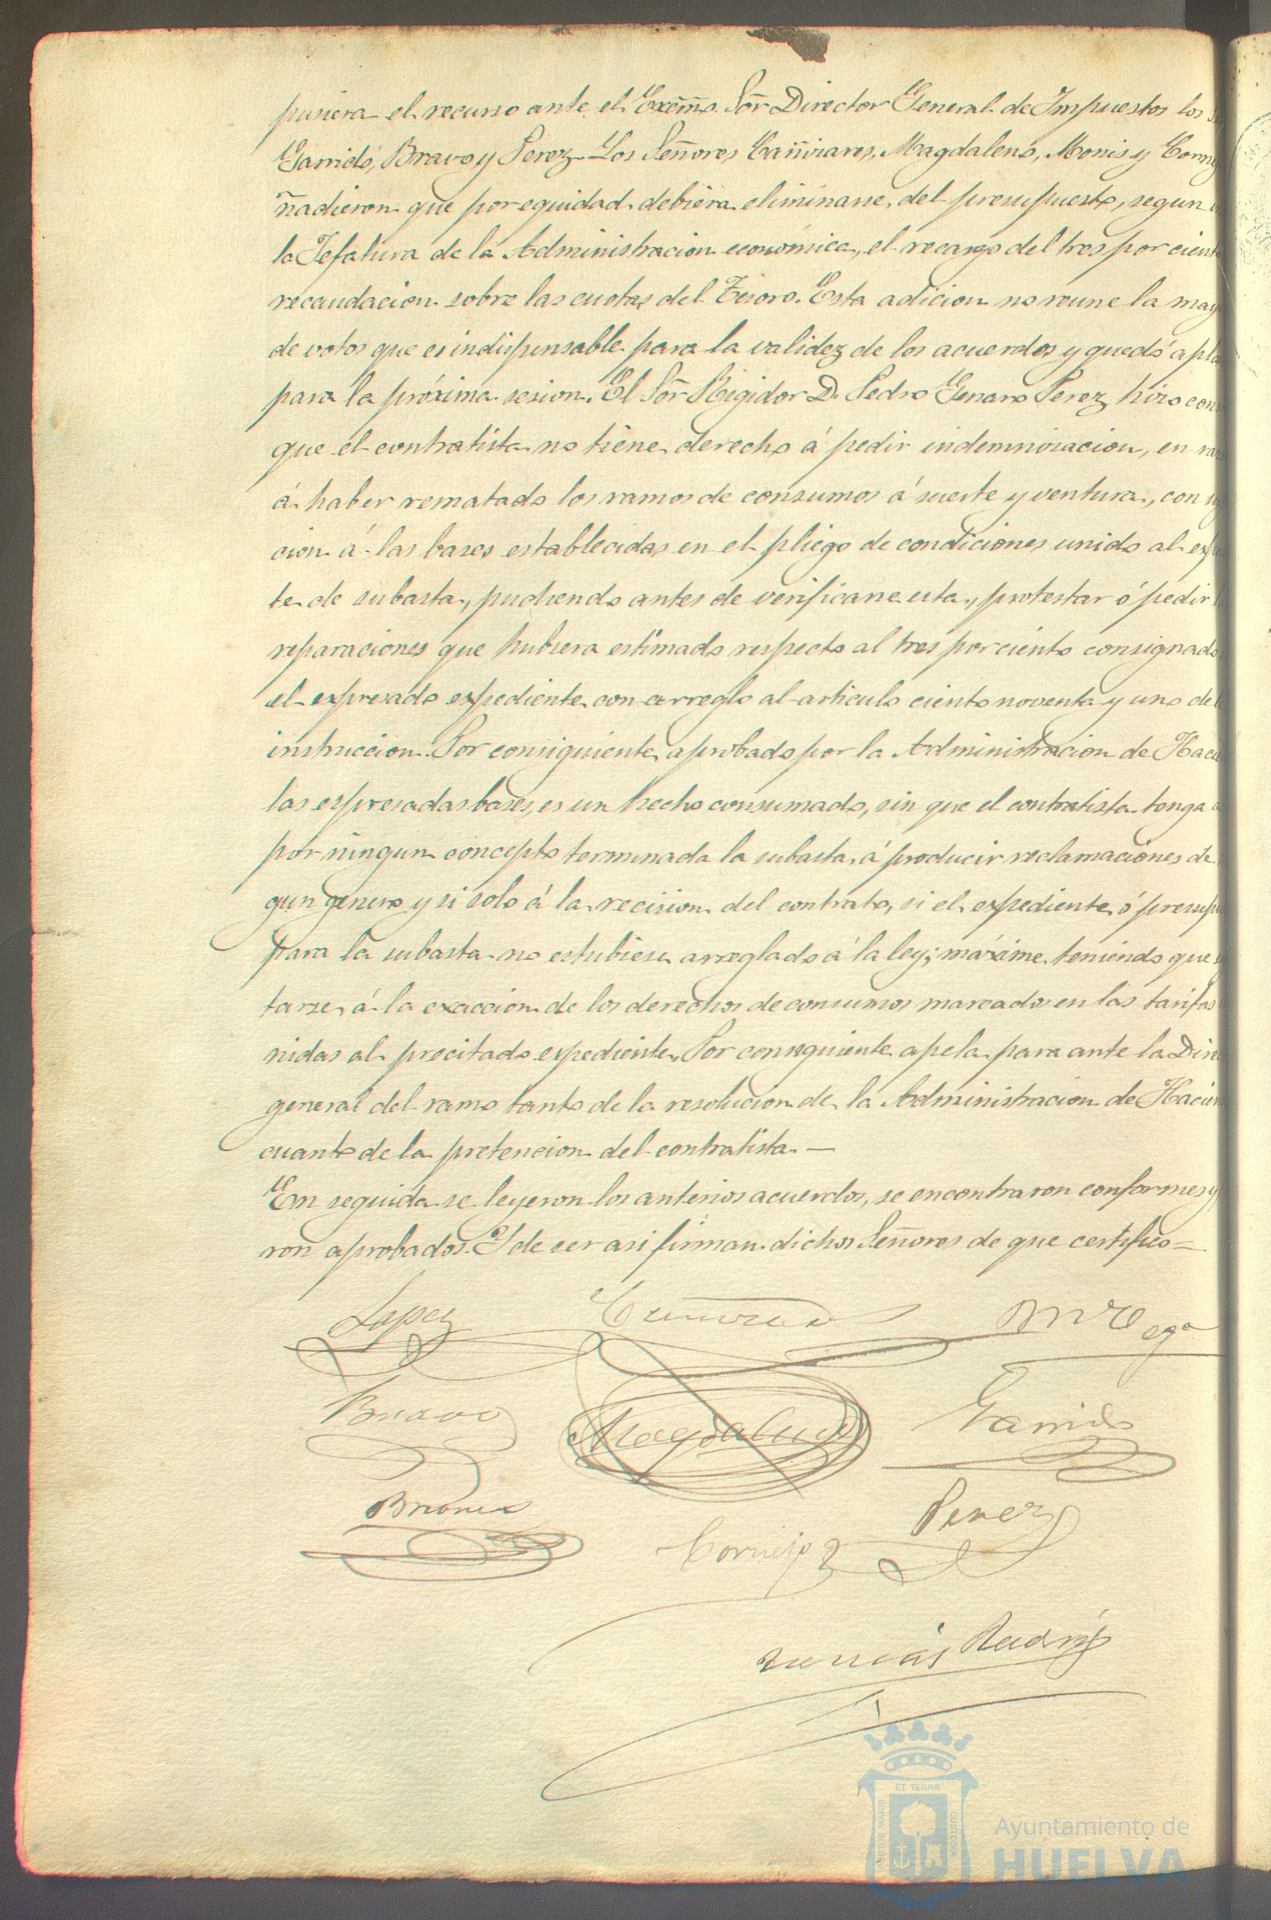 pusiera el recurso ante el Excmo. Sör Director General de Impuestos los
Garrido, Bravo y Perez. Los Señores Cañizares, Magdaleno, Monis y Corne
ñadieron que por equidad debiera eliminarse, del presupuesto, segun
la Jefatura de la Administracion económica, el recargo del tres por ciento
recaudacion sobre las cuotas del Tesoro. Esta adicion no reune la may
de votos que es indispensable para la validez de los acuerdos y quedó apla
para la próxima sesion. El Sör Rigidor D. Pedro Genaro Perez hizo cons
que el contratista no tiene derecho á pedir indemnizacion, en ra
á haber rematado los ramos de consumos á suerte y ventura, con su
cion á las bases establecidas en el pliego de condiciones unido al exp
te de subasta, pudiendo antes de verificarse esta, protestar ó pedir
reparaciones que hubiera estimado respecto al tres por ciento consignado
el expresado expediente con arreglo al articulo ciento noventa y uno de
instruccion. Por consiguiente, aprobado por la Administracion de Haci
las espresadas bases, es un hecho consumado, sin que el contratista tenga
por ningun concepto terminada la subasta, á producir reclamaciones de
gun genero y si solo á la recision del contrato, si el expediente ó presup
para la subasta no estubiese arreglado á la ley; máxime teniendo que
tarse á la exaccion de los derechos de consumos marcados en las tarifas
nidas al precitado expediente. Por consiguiente apela para ante la Dire
general del ramo tanto de la resolucion de la Administracion de Hacien
cuanto de la pretencion del contratista. —
En seguida se leyeron los anterios acuerdos, se encontraron conformes y
ron aprobados. Y de ser asi firman dichos Señores de que certifico =
Lopez
Bravo Magdaleno Garrido
Cornejo Perez
ET TERRÆ
Ayuntamiento de
HUELVA